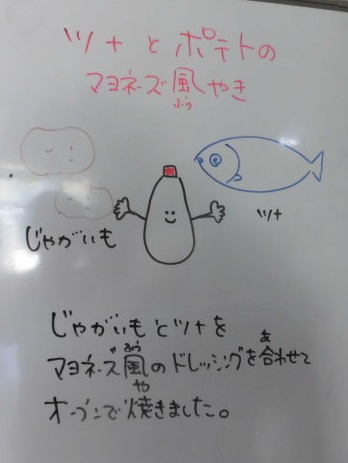 ツナとポテトの
マヨネーズ風やき
ふう
じゃがいも
ツナ
じゃがいもとツナを
ふう
あ
マヨネーズ風のドレッシングを合わせて
や
オーブンで焼きました。